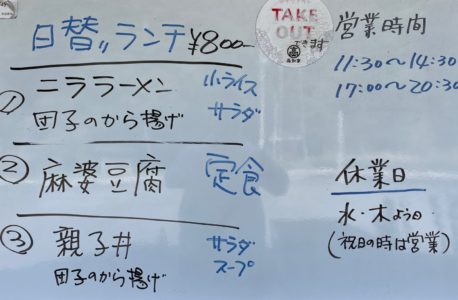 日替〃ランチ ¥800-
TAKE
OUT
できます
営業時間
11:30〜14:30
17:00〜20:30
① ニララーメン 小ライス
団子のから揚げ サラダ
② 麻婆豆腐 定食
③ 親子丼 サラダ
団子のから揚げ スープ
休業日
水・木よう日
(祝日の時は営業)